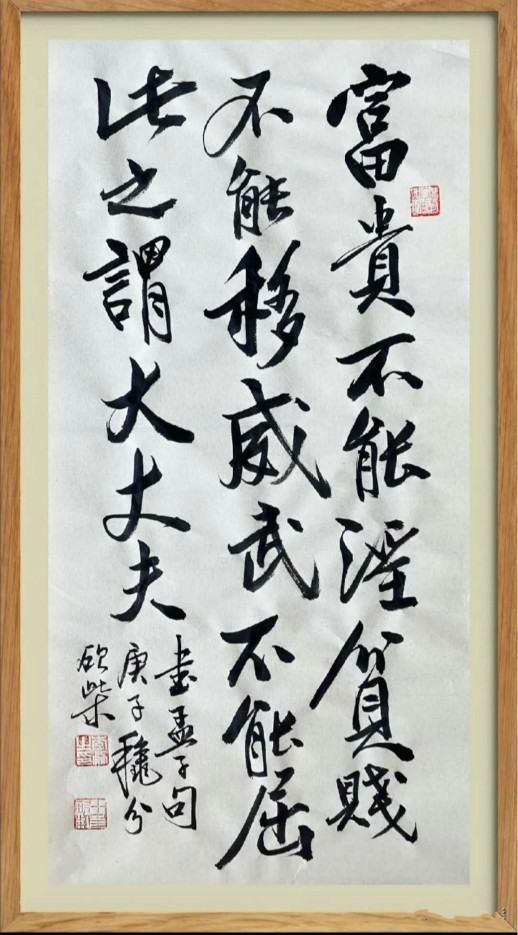 富貴不能淫貧賤
不能移威武不能屈
此之謂大丈夫
書孟子句
庚子穐分
砍柴